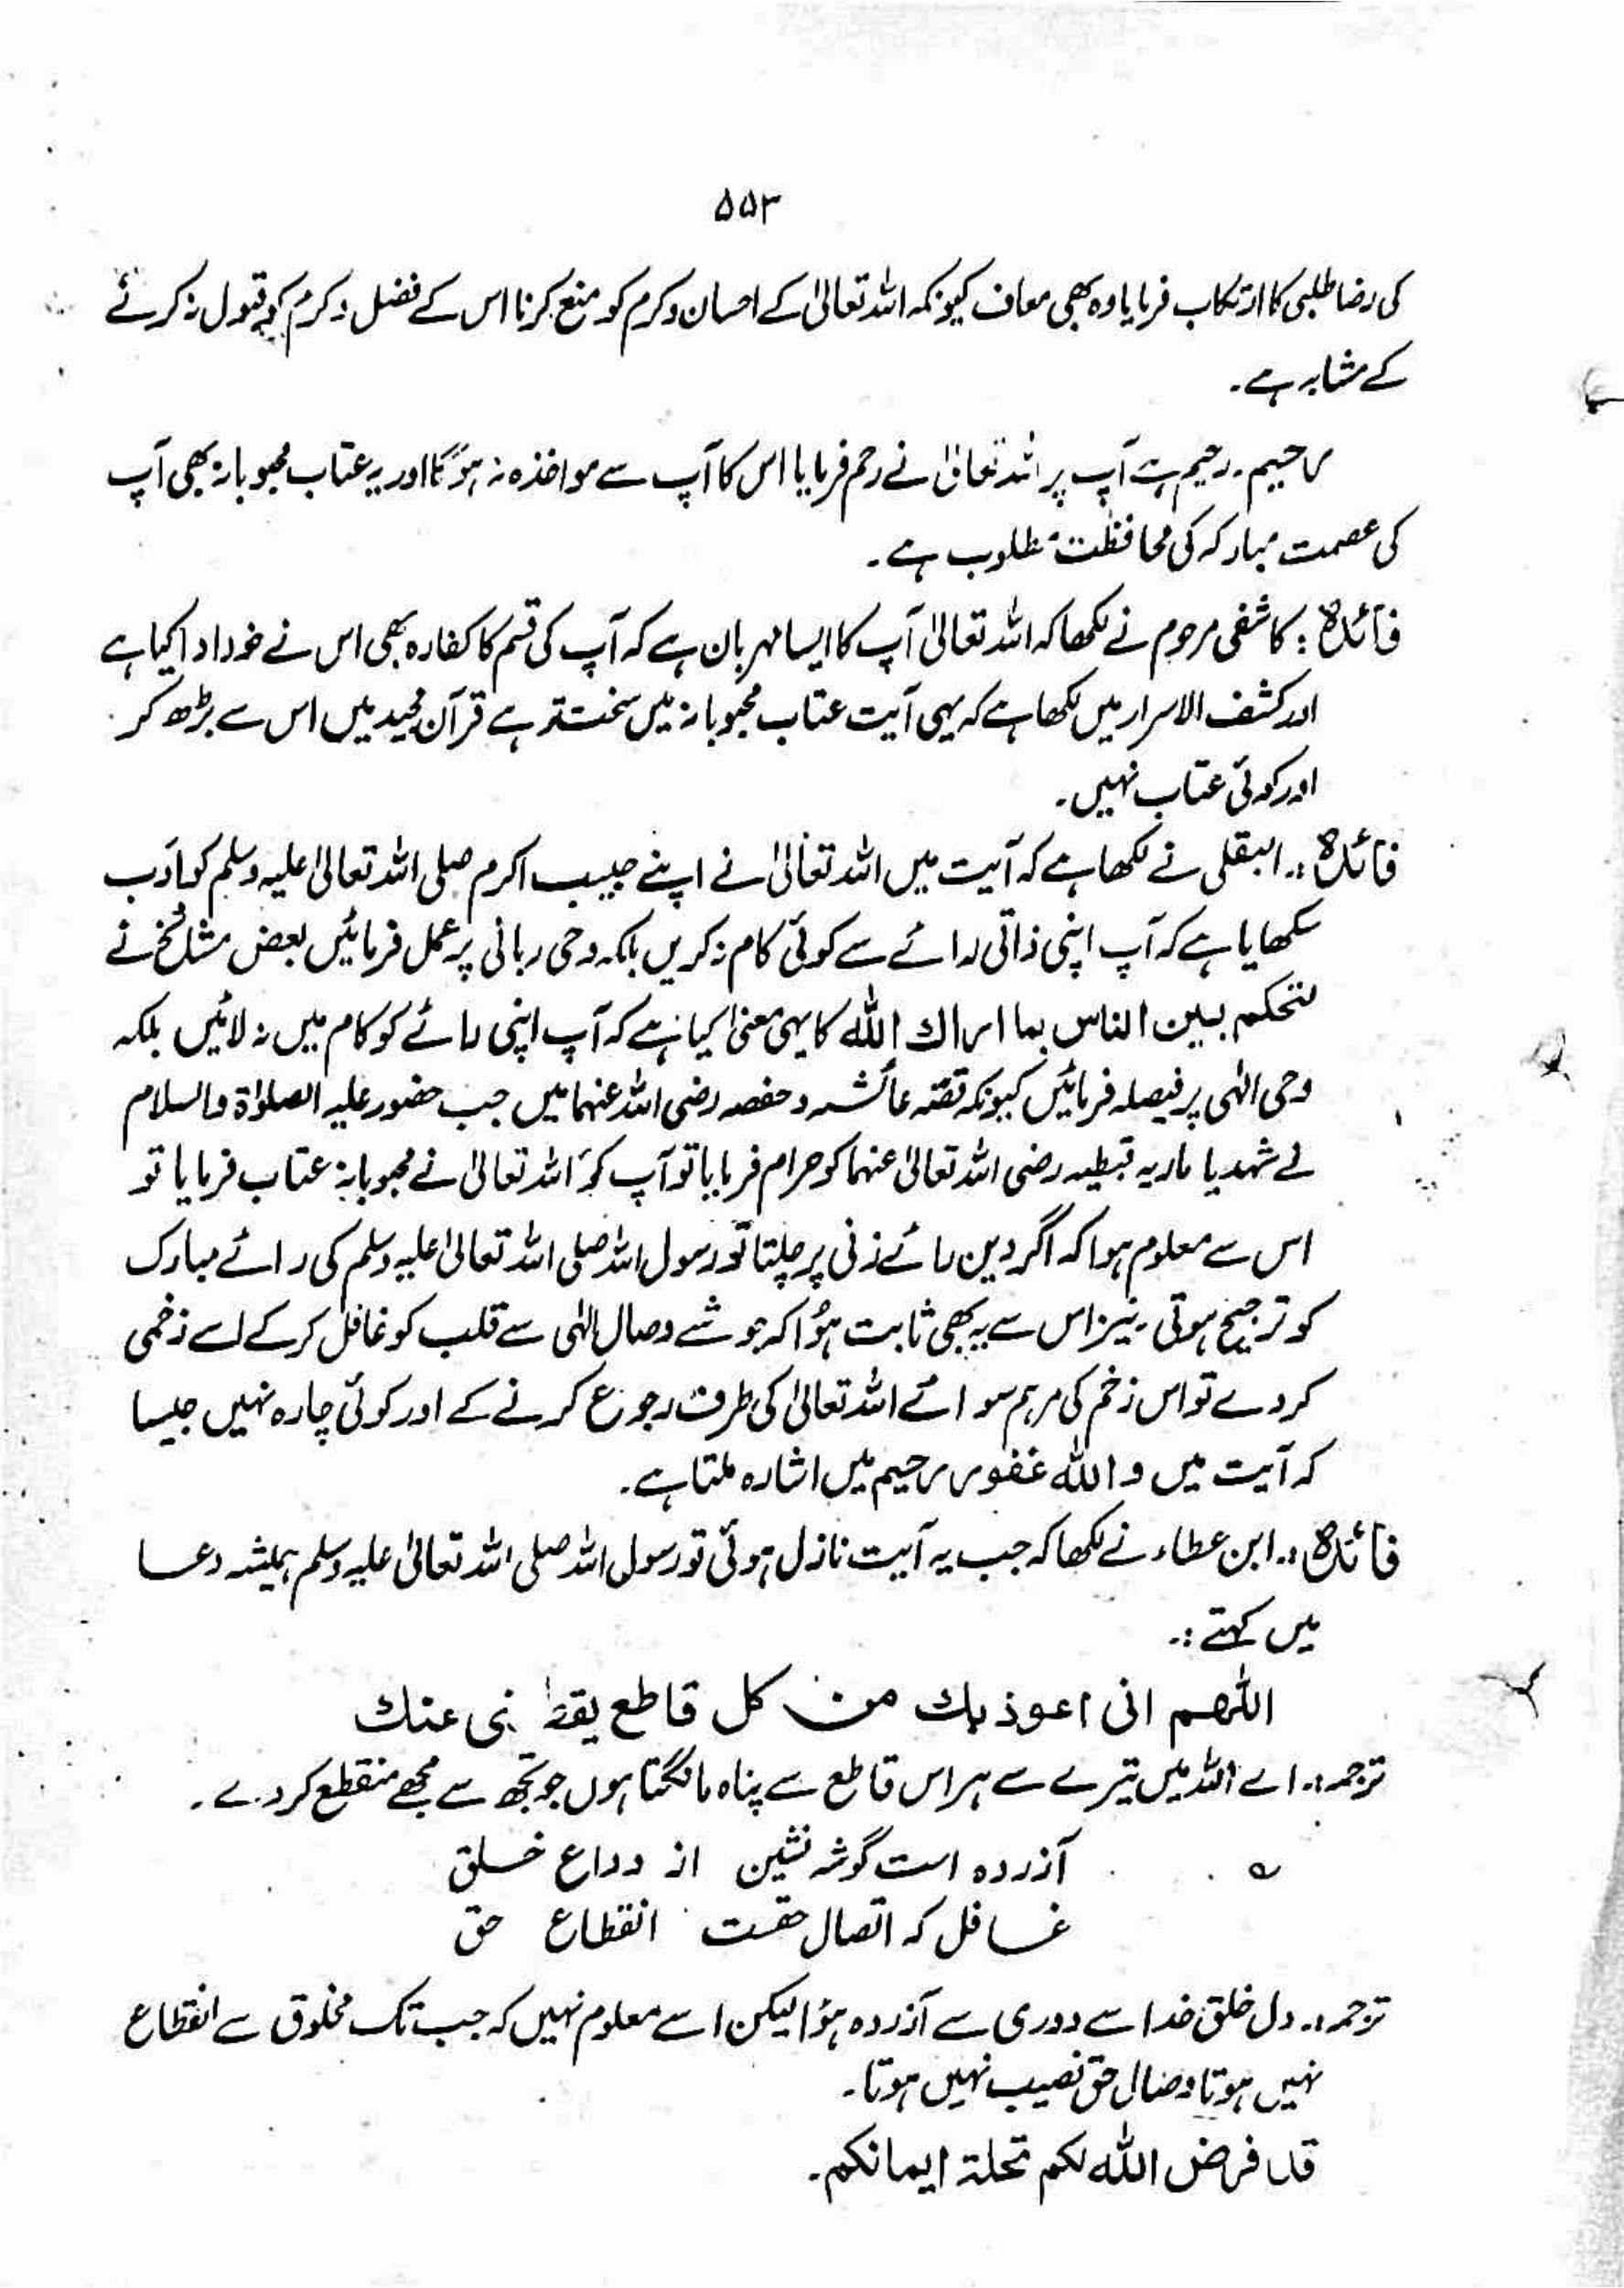 ۵۵۳
کی رضا طلبی کا ارتکاب فرمایا وہ بھی معاف کیونکہ اللہ تعالیٰ کے احسان و کرم کو منع کرنا اس کے فضل و کرم کو قبول نہ کرنے
کے مشابہ ہے۔
رحیم۔ رحیم ہے آپ پر اللہ تعالیٰ نے رحم فرمایا اس کا آپ سے مواخذہ نہ ہوگا اور یہ عتاب محبوبانہ بھی آپ
کی عصمت مبارکہ کی محافظت مطلوب ہے۔
فائدہ : کاشفی مرحوم نے لکھا کہ اللہ تعالیٰ آپ کا ایسا مہربان ہے کہ آپ کی قسم کا کفارہ بھی اس نے خود ادا کیا ہے
اور کشف الاسرار میں لکھا ہے کہ یہی آیت عتاب محبوبانہ میں سخت تر ہے قرآن مجید میں اس سے بڑھ کر
اور کوئی عتاب نہیں۔
فائدہ :۔ البقلی نے لکھا ہے کہ آیت میں اللہ تعالیٰ نے اپنے حبیب اکرم صلی اللہ تعالیٰ علیہ وسلم کو ادب
سکھایا ہے کہ آپ اپنی ذاتی رائے سے کوئی کام نہ کریں بلکہ وحی ربانی پر عمل فرمائیں بعض مشائخ نے
لتحکم بین الناس بما اراك الله کا یہی معنیٰ کیا ہے کہ آپ اپنی رائے کو کام میں نہ لائیں بلکہ
وحی الٰہی پر فیصلہ فرمائیں کیونکہ قصّہ عائشہ و حفصہ رضی اللہ عنہما میں جب حضور علیہ الصلوٰۃ والسلام
نے شہد یا ماریہ قبطیہ رضی اللہ تعالیٰ عنہما کو حرام فرمایا تو آپ کو اللہ تعالیٰ نے محبوبانہ عتاب فرمایا تو
اس سے معلوم ہوا کہ اگر دین رائے زنی پر چلتا تو رسول اللہ صلی اللہ تعالیٰ علیہ وسلم کی رائے مبارک
کو ترجیح ہوتی۔ نیز اس سے یہ بھی ثابت ہؤا کہ جو شے وصال الٰہی سے قلب کو غافل کر کے اسے زخمی
کر دے تو اس زخم کی مرہم سوائے اللہ تعالیٰ کی طرف رجوع کرنے کے اور کوئی چارہ نہیں جیسا
کہ آیت میں والله غفور رحیم میں اشارہ ملتا ہے۔
فائدہ :۔ ابن عطاء نے لکھا کہ جب یہ آیت نازل ہوئی تو رسول اللہ صلی اللہ تعالیٰ علیہ وسلم ہمیشہ دعا
میں کہتے :۔
اللهم انی اعوذ بك من كل قاطع یقطعنی عنك
ترجمہ :۔ اے اللہ میں تیرے سے ہر اس قاطع سے پناہ مانگتا ہوں جو تجھ سے مجھے منقطع کر دے۔
؎ آزردہ است گوشہ نشین از وداع خلق
غافل کہ اتصال حقست انقطاع حق
ترجمہ :۔ دل خلق خدا سے دوری سے آزردہ ہؤا لیکن اسے معلوم نہیں کہ جب تک مخلوق سے انقطاع
نہیں ہوتا وصال حق نصیب نہیں ہوتا۔
قد فرض الله لکم تحلة ایمانکم۔